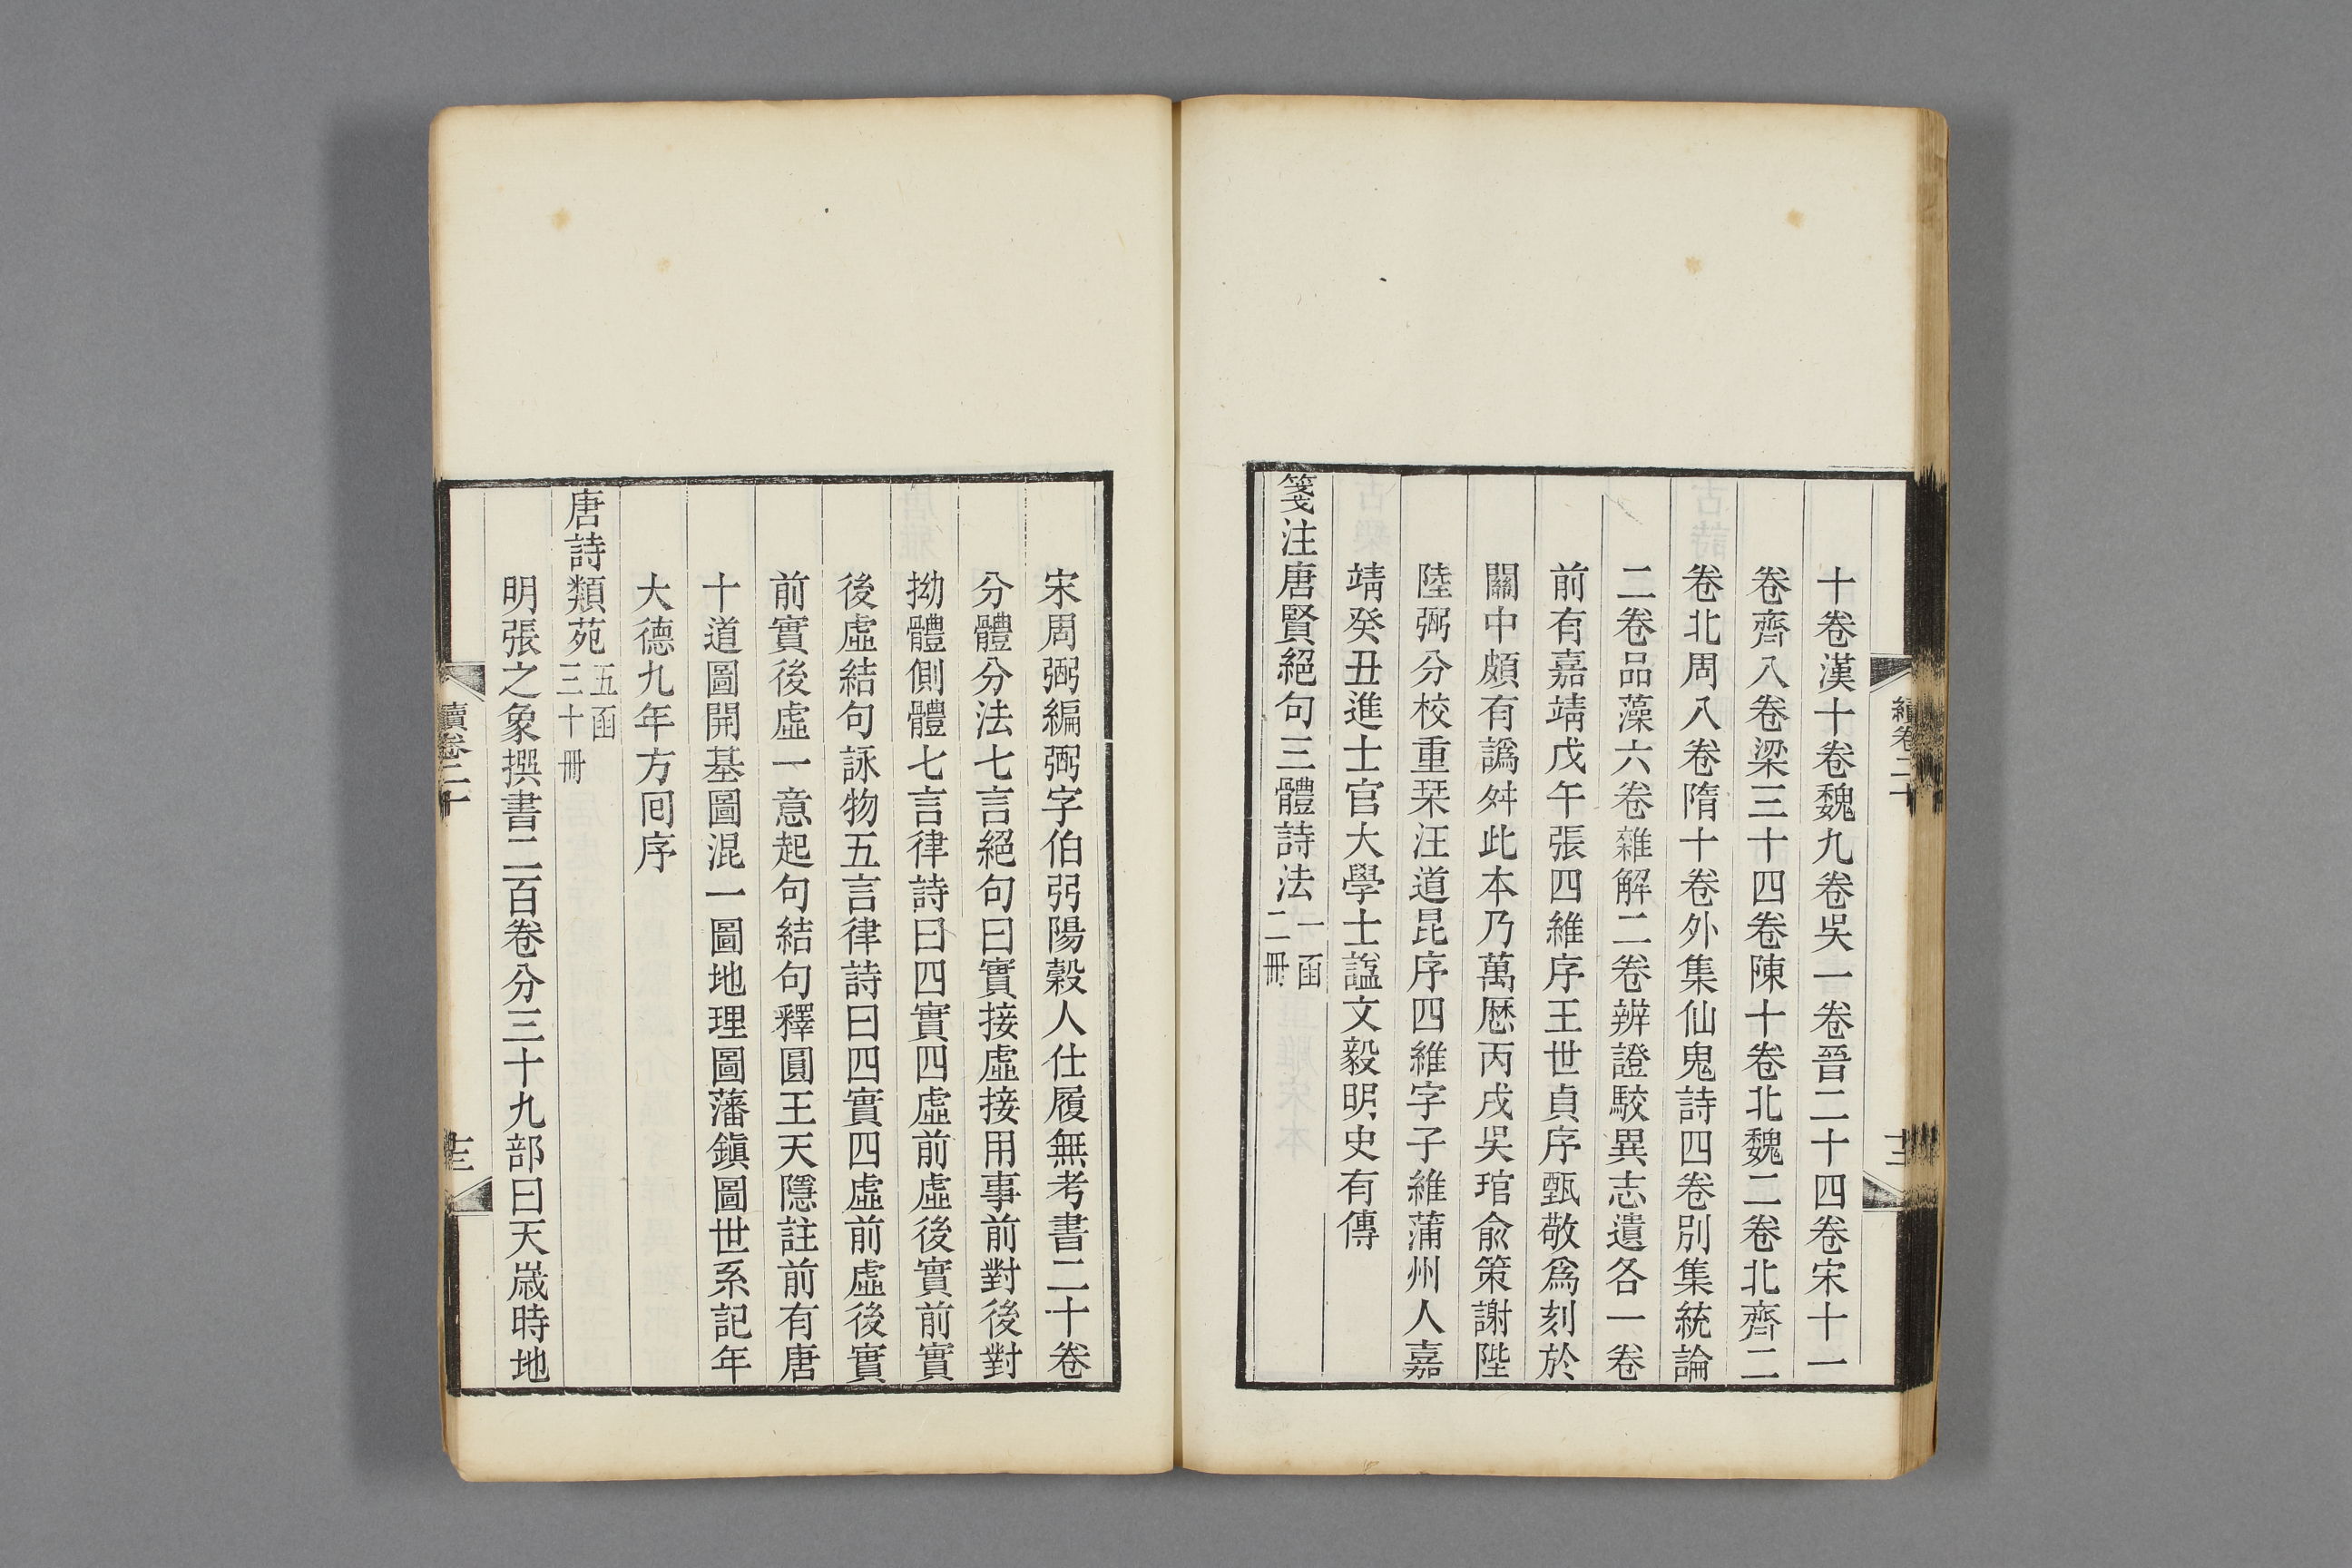 十卷漢十卷魏九卷吳一卷晉二十四卷宋十一
卷齊八卷梁三十四卷陳十卷北魏二卷北齊二
卷北周八卷隋十卷外集仙鬼詩四卷別集統論
二卷品藻六卷雜解二卷辨證駮異志遺各一卷
前有嘉靖戊午張四維序王世貞序甄敬爲刻於
關中頗有譌舛此本乃萬厯丙戌吳琯兪策謝陛
陸弼分校重栞汪道昆序四維字子維蒲州人嘉
靖癸丑進士官大學士諡文毅明史有傳
箋注唐賢絕句三體詩法一函二冊
續卷二十
十二
宋周弼編弼字伯弜陽穀人仕履無考書二十卷
分體分法七言絕句曰實接虛接用事前對後對
拗體側體七言律詩曰四實四虛前虛後實前實
後虛結句詠物五言律詩曰四實四虛前虛後實
前實後虛一意起句結句釋圓王天隱註前有唐
十道圖開基圖混一圖地理圖藩鎭圖世系記年
大德九年方囘序
唐詩類苑五函三十冊
明張之象撰書二百卷分三十九部曰天嵗時地
續卷二十
十三